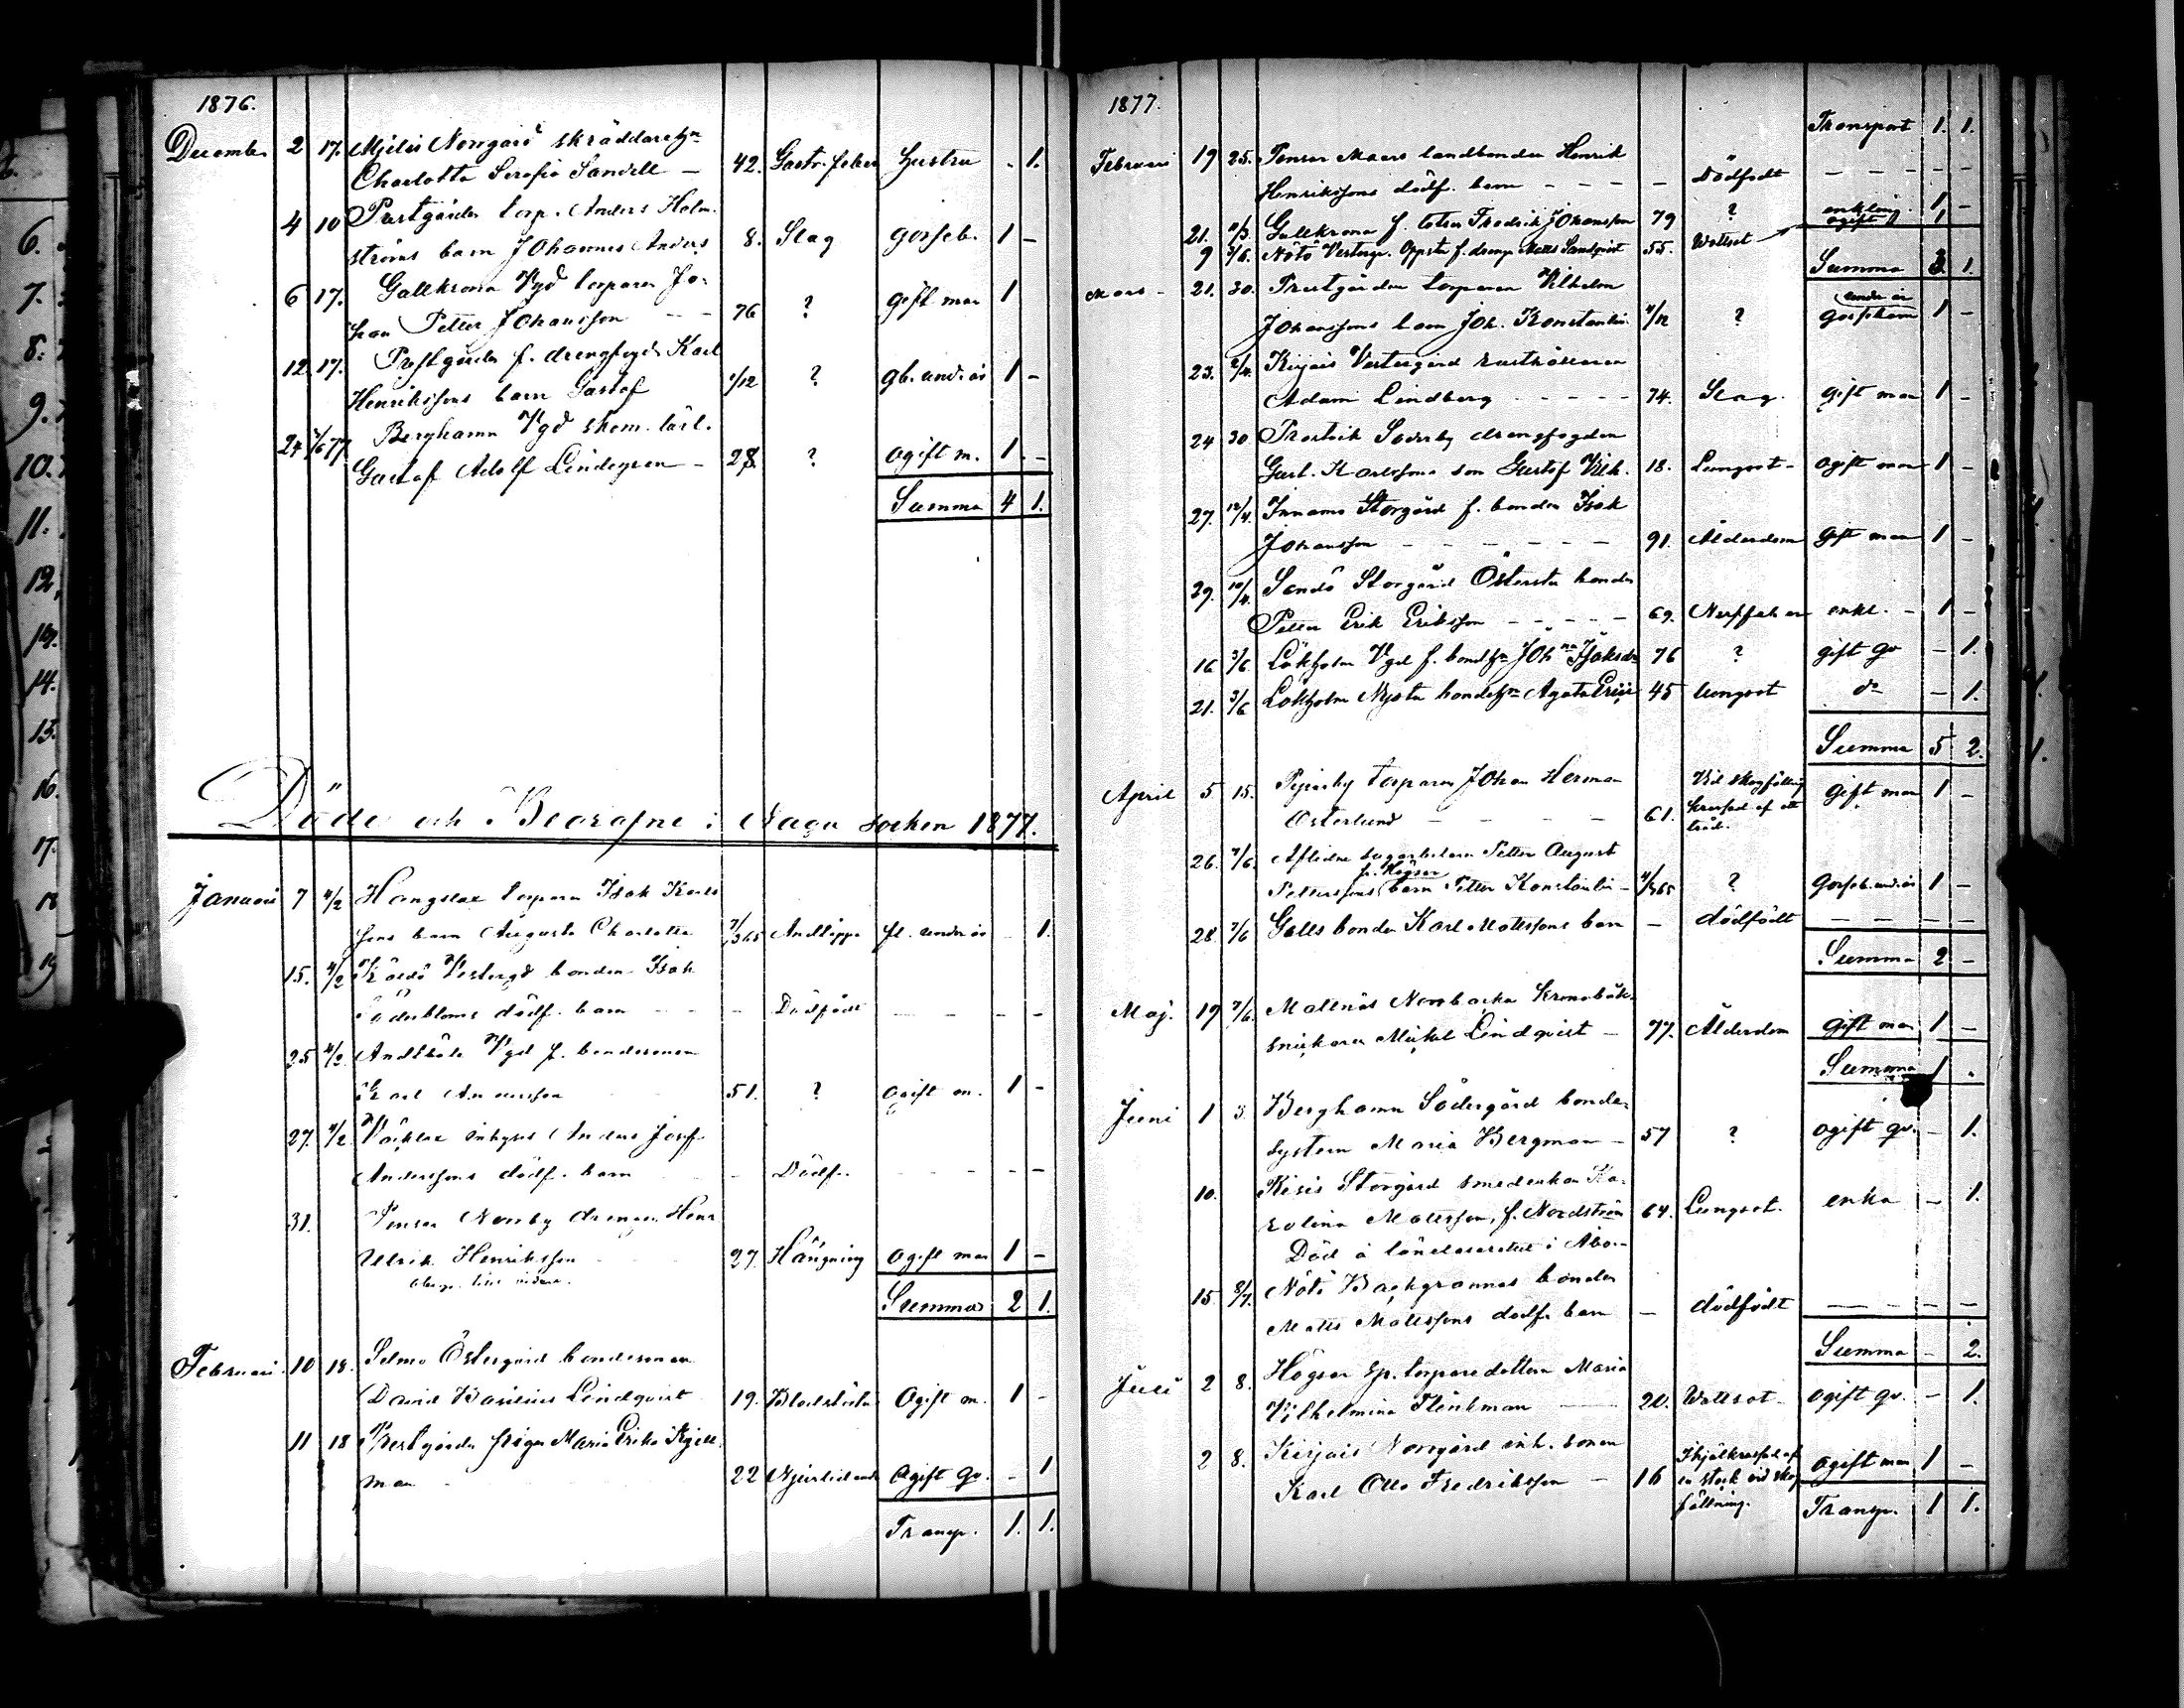 1876.
December 2 17. Norrgård skräddarehn
Charlotta Serafia Sandell – 42. Gastr. feber hustru . 1.
4 10 Prestgården torp. Anders Holm-
ströms barn Johannes Anders 8. Slag gosseb. 1 –
6 17. Gallkrona Vgd torparen Jo-
han Petter Johansson – – 76 ? gift man 1
12. 17. Prestgården f. drengfogd. Karl
Henrikssons barn Gustaf 1/12 ? gb. und. år 1 –
24 77 Berghamn Vgd skom. lärl.
Gustaf Adolf Lindegren – 28. ? ogift m. 1. –
Summa 4 1.
Döde och Begrafne i Nagu socken 1877.
Januari 7 4/2 torparen Isak Karls
sons barn Augusta Charlotta 7/365 Andtäppa fl. under år 1.
15. 4/2 Vestergd bonden Isak
Söderbloms dödf. barn – – – Dödfödt – – – –
25 4/2 Vgd f. bondesonen
Karl Andersson 51. ? ogift m. 1 –
27. 4/2 inhyses Anders Josef
Anderssons dödf. barn – Dödf. – – – – –
31. Pensar Norrby drengen Henr
Ulrik Henriksson 27. Hängning ogift man 1 –
Summa 2 1.
Februari. 10 18. Östergård bondesonen
David Basilius Lindqvist 19. Blodstörtn. Ogift m. 1 –
11 18 Prestgården pigan Maria Erika Kjell-
man 22 Njurlidande Ogift qv. – 1
Transp. 1. 1.
1877.
Transport 1. 1.
Februari 19 25. Pensar Maers landbonden Henrik
Henrikssons dödf. barn – – – – Dödfödt – – – – –
21. 11/3. Gallkrona f. lotsen Fredrik Johansson 79 ? enkling 1 –
9 3/6. Nötö Vestergr. Oppsta f. drengen Matts Sandqvist 55. Wattsot ogift 1
Summa 3. 1.
Mars – 21. 30. Prestgården torparen Vilhelm under år
Johanssons barn Joh. Konstantin 4/12 ? gossbarn 1 –
23. 2/4. Kirjais Vestergård rusthållaren
Adam Lindberg – – – – – 74. Slag. gift man 1 –
24 30. Prostvik Söderby drengfogden
Gust. Karlssons son Gustaf Vilh. 18. Lungsot – ogift man 1 –
27. 12/4. Storgård f. bonden Isak
Johansson – – – – – – 91. Ålderdom gift man 1 –
29. 10/4. Sandö Storgård Östersta bonden
Petter Erik Eriksson – – – – – 69. Nerffeber enkl. – 1 –
16 3/6. Lökholm Vgd f. bondehn Johna Isaksdr 76 ? gift qv – 1.
21. 3/6 Lökholm Nysta bondehn Agata 45 Lungsot do – 1.
Summa 5 2.
April 5 15. torparen Johan Herman Vid skogfällning
Österlund – – – – 61. krossad af ett gift man 1 –
träd.
26. 7/6. Aflidne sågarbetaren Petter August
fr. Högsar
Petterssons barn Petter Konstantin – 4/365 ? Gosseb. und. år 1 –
28. 7/6 Galls bonden Karl Mattssons barn – dödfödt – – – – –
Summa 2 –
Maj. 19 7/6. Mattnäs Norrbacka Kronobåts-
snickaren Mickel Lindqvist – 77. Ålderdom gift man 1 –
Summa 1 .
Juni 1 3. Berghamn Södergård bonde-
systern Maria Bergman – 57 ? ogift qv. – 1.
10. Storgård smedenkan Ka-
rolina Mattsson, f. Nordström 64. Lungsot. enka – 1.
Död å länelasarettet i Åbo –
15 8/7. Nötö Backgrannas bonden
Matts Mattssons dödf. barn – dödfödt – – – –
Summa – 2.
Juli 2 8. Högsar torparedottern Maria
Vilhelmina Flinkman – 20. Wattsot. ogift qv. – 1.
2 8. Kirjais Norrgård inh. sonen Ihjälkrossad af
Karl Otto Fredriksson – 16 en stock vid skog ogift man 1 –
fällning. Transp. 1 1.